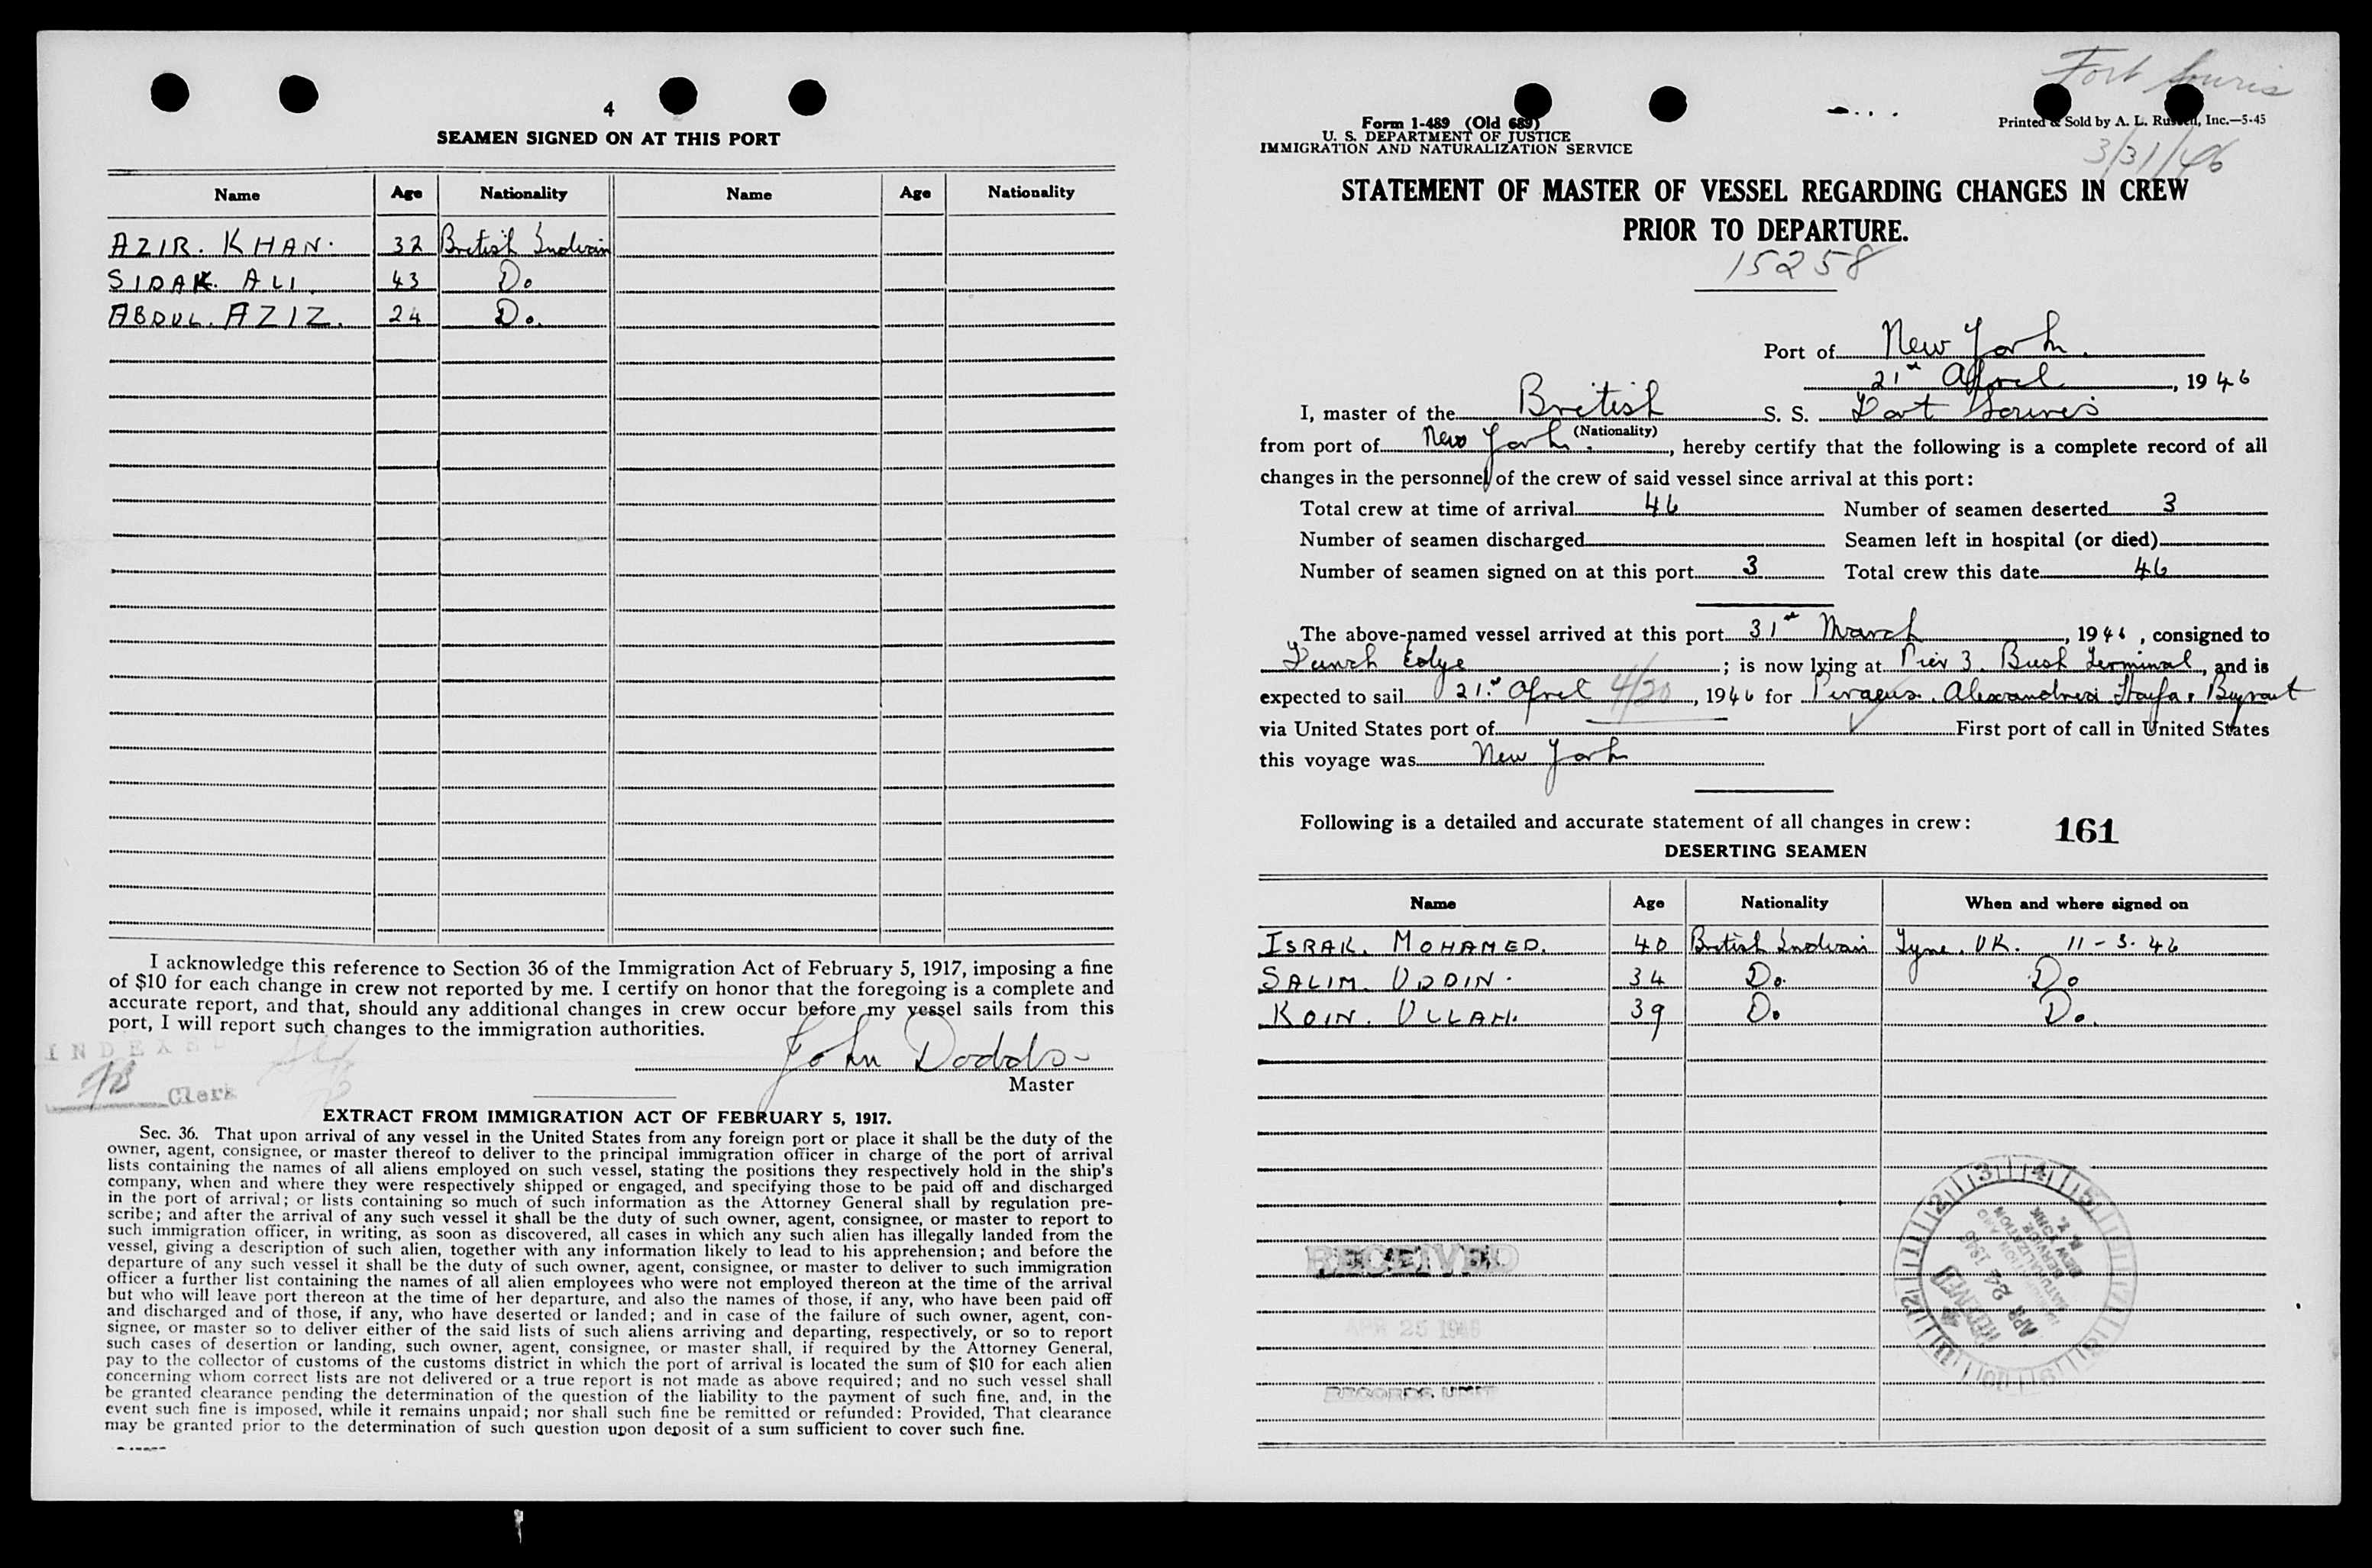 4
SEAMEN SIGNED ON AT THIS PORT
Name Age Nationality Name Age Nationality
AZIR. KHAN. 32 British Indian
SIDAK. ALI. 43 Do
ABDUL. AZIZ. 24 Do.
I acknowledge this reference to Section 36 of the Immigration Act of February 5, 1917, imposing a fine
of $10 for each change in crew not reported by me. I certify on honor that the foregoing is a complete and
accurate report, and that, should any additional changes in crew occur before my vessel sails from this
port, I will report such changes to the immigration authorities.
INDEXED
John Dodds
Master
Clerk
EXTRACT FROM IMMIGRATION ACT OF FEBRUARY 5, 1917.
Sec. 36. That upon arrival of any vessel in the United States from any foreign port or place it shall be the duty of the
owner, agent, consignee, or master thereof to deliver to the principal immigration officer in charge of the port of arrival
lists containing the names of all aliens employed on such vessel, stating the positions they respectively hold in the ship's
company, when and where they were respectively shipped or engaged, and specifying those to be paid off and discharged
in the port of arrival; or lists containing so much of such information as the Attorney General shall by regulation pre-
scribe; and after the arrival of any such vessel it shall be the duty of such owner, agent, consignee, or master to report to
such immigration officer, in writing, as soon as discovered, all cases in which any such alien has illegally landed from the
vessel, giving a description of such alien, together with any information likely to lead to his apprehension; and before the
departure of any such vessel it shall be the duty of such owner, agent, consignee, or master to deliver to such immigration
officer a further list containing the names of all alien employees who were not employed thereon at the time of the arrival
but who will leave port thereon at the time of her departure, and also the names of those, if any, who have been paid off
and discharged and of those, if any, who have deserted or landed; and in case of the failure of such owner, agent, con-
signee, or master so to deliver either of the said lists of such aliens arriving and departing, respectively, or so to report
such cases of desertion or landing, such owner, agent, consignee, or master shall, if required by the Attorney General,
pay to the collector of customs of the customs district in which the port of arrival is located the sum of $10 for each alien
concerning whom correct lists are not delivered or a true report is not made as above required; and no such vessel shall
be granted clearance pending the determination of the question of the liability to the payment of such fine, and, in the
event such fine is imposed, while it remains unpaid; nor shall such fine be remitted or refunded: Provided, That clearance
may be granted prior to the determination of such question upon deposit of a sum sufficient to cover such fine.
Fort Souris
Form 1-489 (Old 689)
U. S. DEPARTMENT OF JUSTICE
IMMIGRATION AND NATURALIZATION SERVICE
Printed & Sold by A. L. Russell, Inc.—5-45
3/31/46
STATEMENT OF MASTER OF VESSEL REGARDING CHANGES IN CREW
PRIOR TO DEPARTURE.
15258
Port of New York.
21st April, 1946
I, master of the British S. S. Fort Souris
(Nationality)
from port of New York., hereby certify that the following is a complete record of all
changes in the personnel of the crew of said vessel since arrival at this port:
Total crew at time of arrival 46 Number of seamen deserted 3
Number of seamen discharged Seamen left in hospital (or died)
Number of seamen signed on at this port 3 Total crew this date 46
The above-named vessel arrived at this port 31st March, 1946, consigned to
Funch Edye; is now lying at Pier 3. Bush Terminal, and is
expected to sail 21st April 4/20, 1946 for Piraeus. Alexandria Haifa & Beyrout
via United States port of First port of call in United States
this voyage was New York
Following is a detailed and accurate statement of all changes in crew:
161
DESERTING SEAMEN
Name Age Nationality When and where signed on
ISRAK. MOHAMED. 40 British Indian Tyne. UK. 11-3-46
SALIM. UDDIN. 34 Do. Do
KOIN. ULLAH. 39 Do Do.
RECEIVED
APR 25 1946
RECORDS UNIT
RECEIVED
APR 24 1946
IMMIGRATION AND
NATURALIZATION
SERVICE
NEW YORK